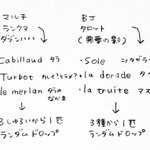 マルチ
ランクマ
タブンハハ
Cabillaud タラ
Turbot カレイ?ヒラメ?
le merlan タラの
なかま
3しゅるいから1匹
ランダムドロップ
BJ
タロット
(廃番の影)
・Sole シタビラメ
・la dorade タイ
・la truite マス
3種から1匹
ランダムドロップ